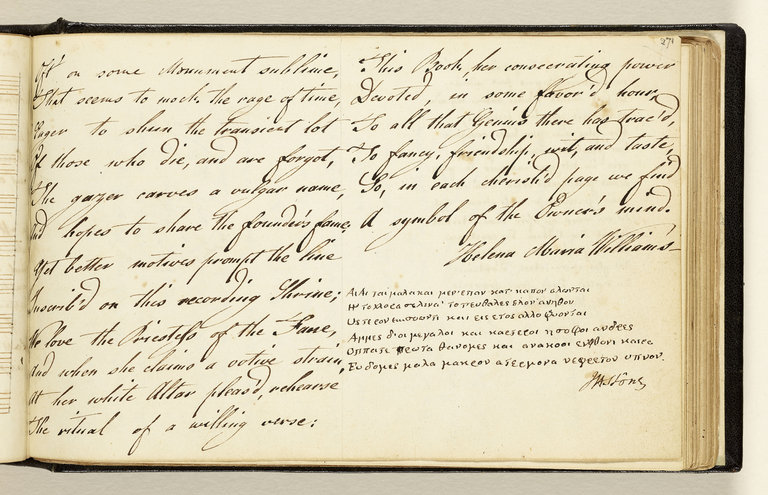 Oft on some Monument sublime,
That seems to mock the rage of time,
Eager to shun the transient lot
Of those who die, and are forgot,
The gazer carves a vulgar name,
And hopes to share the founder's fame;
Yet better motives prompt the line
Inscrib'd on this recording Shrine;
We love the Priestess of the Fane,
And when she claims a votive strain,
At her white Altar pleas'd, rehearse
The ritual of a willing verse:
271
This Book, her consecrating power
Devoted, in some favor'd hour,
To all that Genius there has trac'd,
To fancy, friendship, wit, and taste,
So, in each cherish'd page we find
A symbol of the Owner's mind.
Helena Maria Williams
Αι Αι ται μαλακαι μεν επαν κατα καπον ολωνται
Η τα χλορα σελινα το τ ευθαλες ανηθον
Υστερον και εις ετος αλλο φυοντι
Αμμες δ οι μεγαλοι και καρτεροι η σοφοι ανδρες
Οππατε πρωτα θανομες και ανακοοι εν χθονι
Ευδομες μαλα μακρον ατερμονα νηγρετον υπνον.